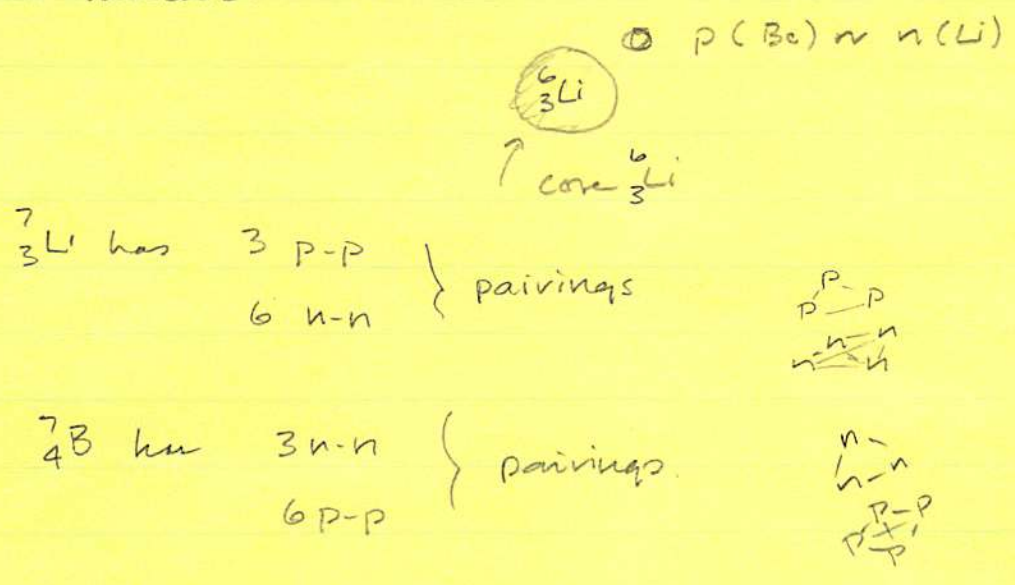 p (Be) ~ n (Li)
⁶₃Li
core ⁶₃Li
⁷₃Li has 3 p-p
6 n-n
} pairings
p
p p
n n
n n
⁷₄B has 3 n-n
6 p-p
} pairings.
n
n n
p-p
p-p